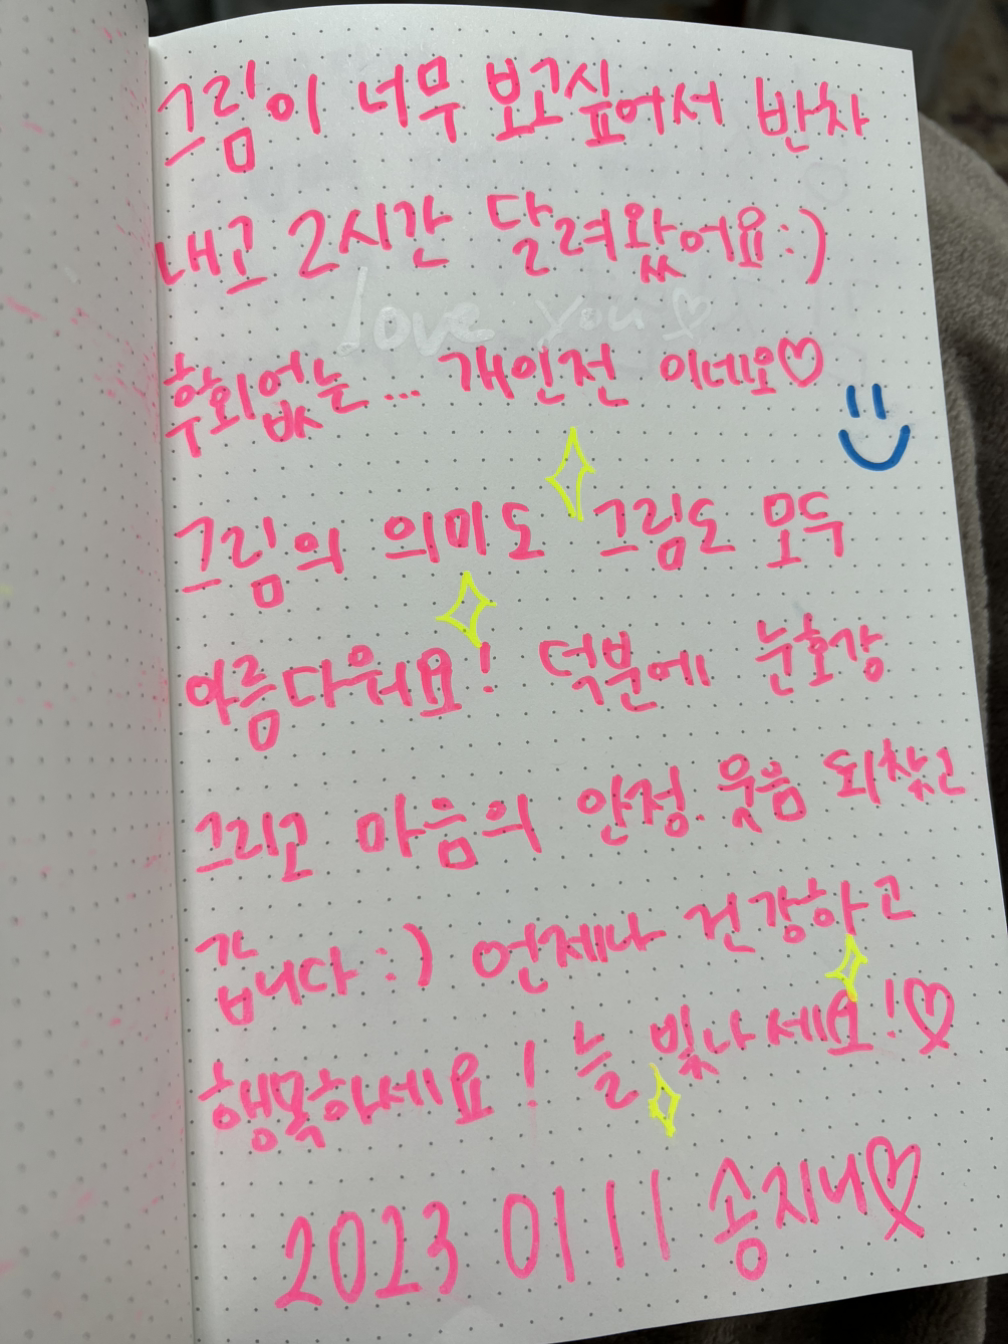 그림이 너무 보고싶어서 반차
내고 2시간 달려왔어요:)
love you♡
후회없는... 개인전 이네요♡
그림의 의미도 그림도 모두
아름다워요! 덕분에 눈호강
그리고 마음의 안정. 웃음 되찾고
갑니다:) 언제나 건강하고
행복하세요! 늘 빛나세요!♡
2023 0111 송지니♡